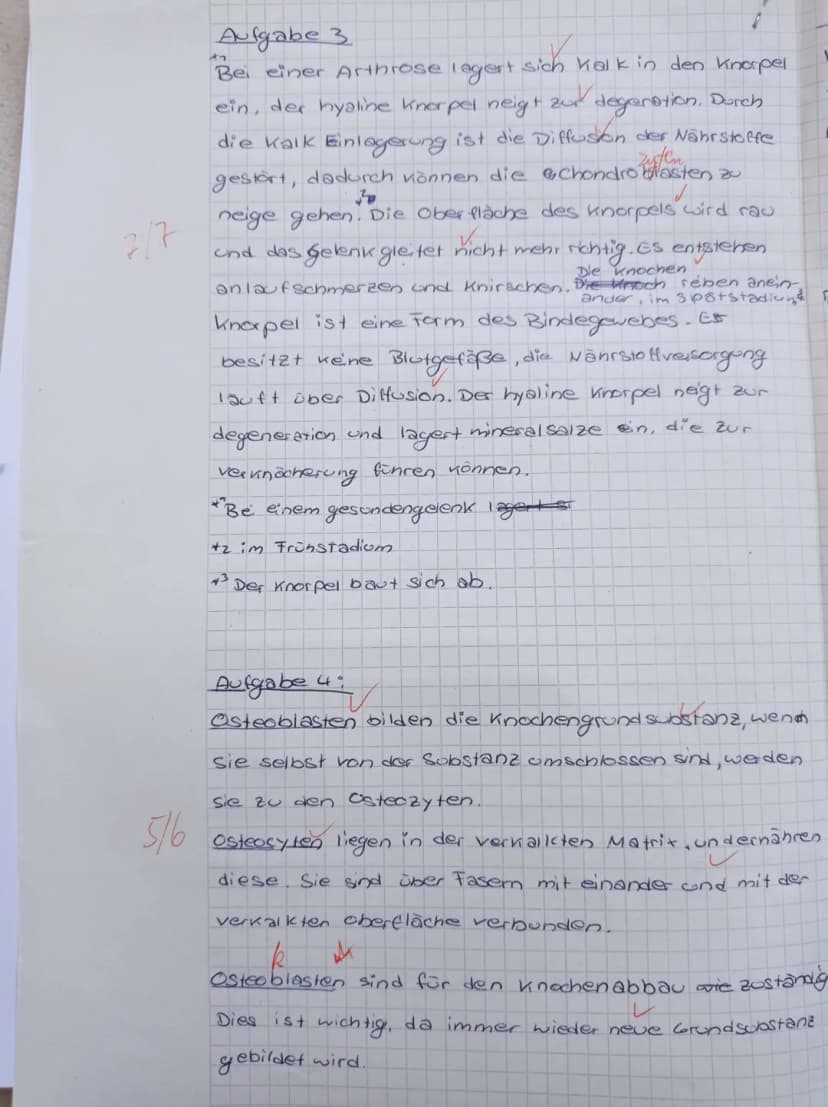 Aufgabe 3
*1 Bei einer Arthrose lagert sich Kalk in den Knorpel
ein, der hyaline Knorpel neigt zur degeration. Durch
die Kalk Einlagerung ist die Diffusion der Nährstoffe
zyten
gestört, dadurch können die Chondroblasten zu
neige gehen. *2 Die Oberfläche des Knorpels wird rau
7/7
und das Gelenk gleitet nicht mehr richtig. Es entstehen
Die Knochen
anlaufschmerzen und Knirschen. Die Knoch reiben anein-
ander, im Spätstadium
Knorpel ist eine Form des Bindegewebes. Er
besitzt keine Blutgefäße, die Nährstoffversorgung
läuft über Diffusion. Der hyaline Knorpel neigt zur
degeneration und lagert mineralsalze ein, die zur
verknöcherung führen können.
*1 Bei einem gesundengelenk lagert
*2 im Frühstadium
*3 Der Knorpel baut sich ab.
Aufgabe 4:
Osteoblasten bilden die Knochengrundsubstanz, wenn
sie selbst von der Substanz umschlossen sind, werden
sie zu den Osteozyten.
5/6
Osteosyten liegen in der verkalkten Matrix, undernähren
diese. Sie sind über Fasern mit einander und mit der
verkalkten oberfläche verbunden.
k
Osteoblasten sind für den Knochenabbau wie zuständig
Dies ist wichtig, da immer wieder neue Grundsubstanz
gebildet wird.